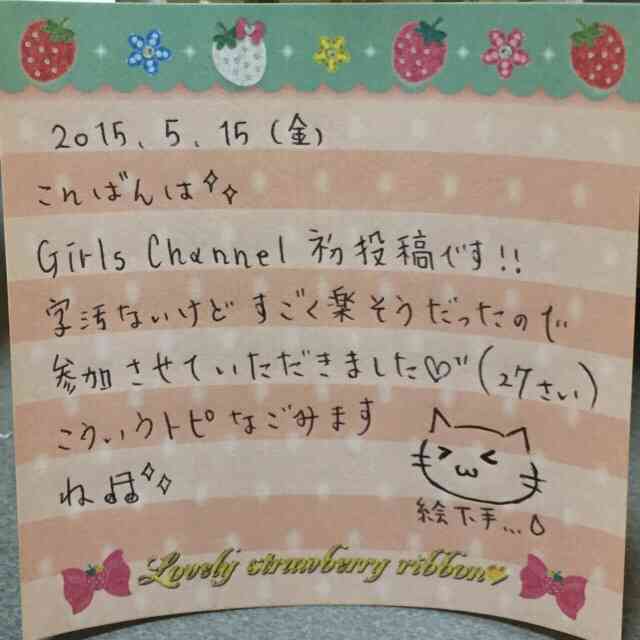 2015、5、15(金)
こんばんは
Girls Channel 初投稿です!!
字汚ないけどすごく楽そうだったので
参加させていただきました♡"(27さい)
こういうトピなごみます
ね♫
絵下手...
Lovely strawberry ribbon